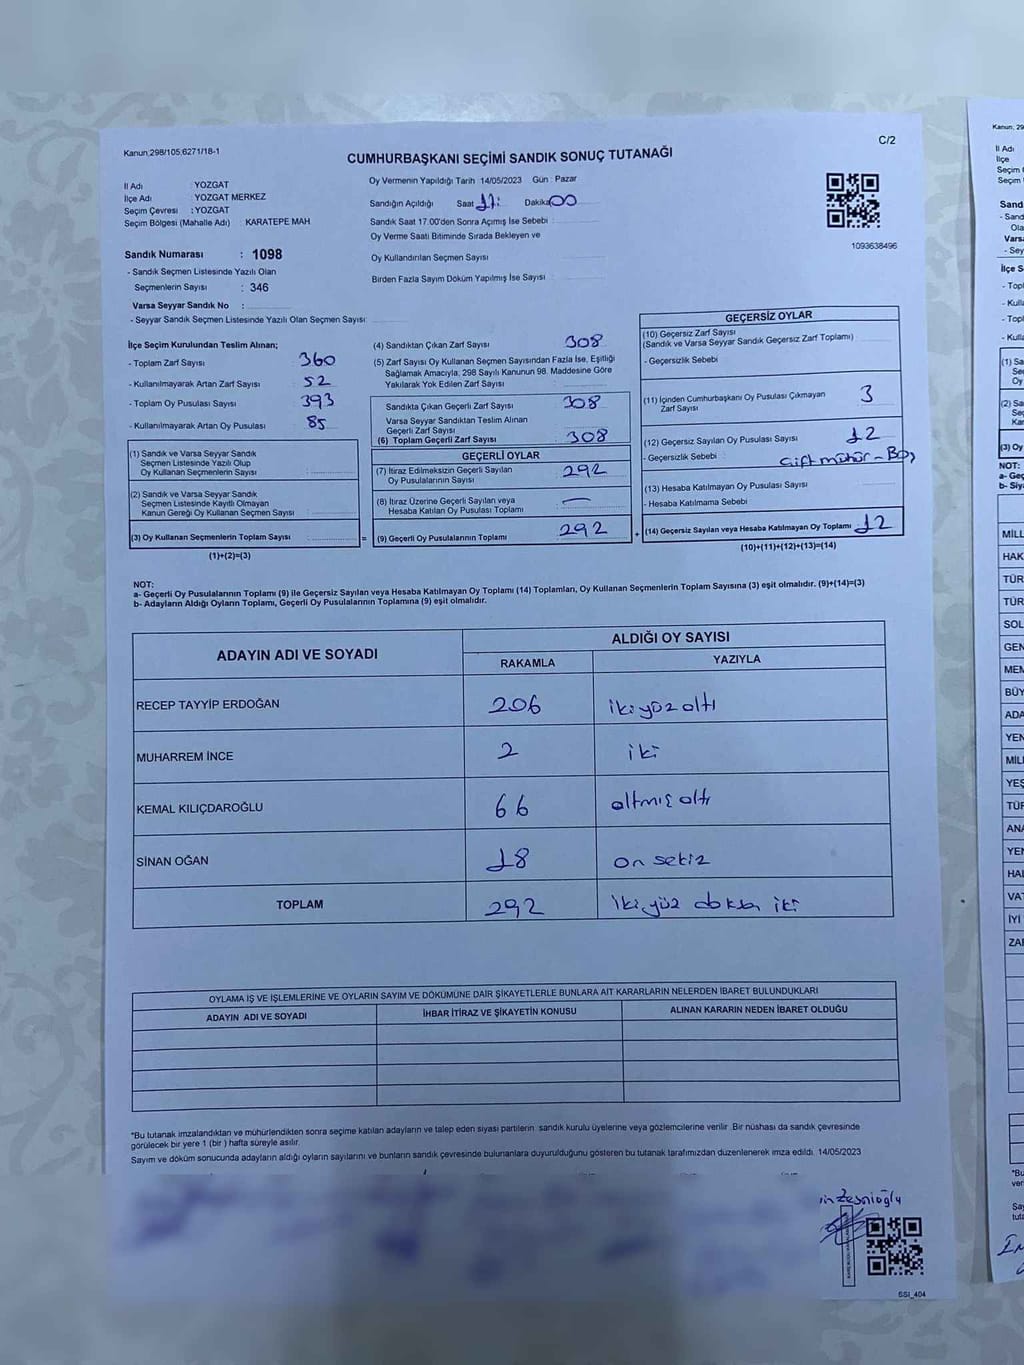 Kanun;298/105;6271/18-1
C/2
CUMHURBAŞKANI SEÇİMİ SANDIK SONUÇ TUTANAĞI
İl Adı : YOZGAT
İlçe Adı : YOZGAT MERKEZ
Seçim Çevresi : YOZGAT
Seçim Bölgesi (Mahalle Adı) : KARATEPE MAH
Sandık Numarası : 1098
- Sandık Seçmen Listesinde Yazılı Olan
Seçmenlerin Sayısı : 346
Varsa Seyyar Sandık No :
- Seyyar Sandık Seçmen Listesinde Yazılı Olan Seçmen Sayısı:
Oy Vermenin Yapıldığı Tarih :14/05/2023 Gün : Pazar
Sandığın Açıldığı Saat 17: Dakika 00
Sandık Saat 17.00'den Sonra Açımış İse Sebebi :
Oy Verme Saati Bitiminde Sırada Bekleyen ve
Oy Kullandırılan Seçmen Sayısı :
Birden Fazla Sayım Döküm Yapılmış İse Sayısı :
1093638496
İlçe Seçim Kurulundan Teslim Alınan;
- Toplam Zarf Sayısı : 360
- Kullanılmayarak Artan Zarf Sayısı : 52
- Toplam Oy Pusulası Sayısı : 393
- Kullanılmayarak Artan Oy Pusulası : 85
(1) Sandık ve Varsa Seyyar Sandık
Seçmen Listesinde Yazılı Olup
Oy Kullanan Seçmenlerin Sayısı :
(2) Sandık ve Varsa Seyyar Sandık
Seçmen Listesinde Kayıtlı Olmayan
Kanun Gereği Oy Kullanan Seçmen Sayısı :
(3) Oy Kullanan Seçmenlerin Toplam Sayısı :
(1)+(2)=(3)
(4) Sandıktan Çıkan Zarf Sayısı : 308
(5) Zarf Sayısı Oy Kullanan Seçmen Sayısından Fazla İse, Eşitliği
Sağlamak Amacıyla; 298 Sayılı Kanunun 98. Maddesine Göre
Yakılarak Yok Edilen Zarf Sayısı :
Sandıkta Çıkan Geçerli Zarf Sayısı : 308
Varsa Seyyar Sandıktan Teslim Alınan
Geçerli Zarf Sayısı :
(6) Toplam Geçerli Zarf Sayısı : 308
GEÇERLİ OYLAR
(7) İtiraz Edilmeksizin Geçerli Sayılan
Oy Pusulalarının Sayısı : 292
(8) İtiraz Üzerine Geçerli Sayılan veya
Hesaba Katılan Oy Pusulası Toplamı : —
= (9) Geçerli Oy Pusulalarının Toplamı : 292
GEÇERSİZ OYLAR
(10) Geçersiz Zarf Sayısı
(Sandık ve Varsa Seyyar Sandık Geçersiz Zarf Toplamı) :
- Geçersizlik Sebebi :
(11) İçinden Cumhurbaşkanı Oy Pusulası Çıkmayan
Zarf Sayısı : 3
(12) Geçersiz Sayılan Oy Pusulası Sayısı : 12
- Geçersizlik Sebebi : Çift mühür - Boş
(13) Hesaba Katılmayan Oy Pusulası Sayısı :
- Hesaba Katılmama Sebebi :
+ (14) Geçersiz Sayılan veya Hesaba Katılmayan Oy Toplamı : 12
(10)+(11)+(12)+(13)=(14)
NOT:
a- Geçerli Oy Pusulalarının Toplamı (9) ile Geçersiz Sayılan veya Hesaba Katılmayan Oy Toplamı (14) Toplamları, Oy Kullanan Seçmenlerin Toplam Sayısına (3) eşit olmalıdır. (9)+(14)=(3)
b- Adayların Aldığı Oyların Toplamı, Geçerli Oy Pusulalarının Toplamına (9) eşit olmalıdır.
ADAYIN ADI VE SOYADI
ALDIĞI OY SAYISI
RAKAMLA YAZIYLA
RECEP TAYYİP ERDOĞAN 206 iki yüz altı
MUHARREM İNCE 2 iki
KEMAL KILIÇDAROĞLU 66 altmış altı
SİNAN OĞAN 18 on sekiz
TOPLAM 292 iki yüz doksan iki
OYLAMA İŞ VE İŞLEMLERİNE VE OYLARIN SAYIM VE DÖKÜMÜNE DAİR ŞİKAYETLERLE BUNLARA AİT KARARLARIN NELERDEN İBARET BULUNDUKLARI
ADAYIN ADI VE SOYADI İHBAR İTİRAZ VE ŞİKAYETİN KONUSU ALINAN KARARIN NEDEN İBARET OLDUĞU
*Bu tutanak imzalandıktan ve mühürlendikten sonra seçime katılan adayların ve talep eden siyasi partilerin sandık kurulu üyelerine veya gözlemcilerine verilir .Bir nüshası da sandık çevresinde
görülecek bir yere 1 (bir ) hafta süreyle asılır.
Sayım ve döküm sonucunda adayların aldığı oyların sayılarını ve bunların sandık çevresinde bulunanlara duyurulduğunu gösteren bu tutanak tarafımızdan düzenlenerek imza edildi. 14/05/2023
SSI_404
Kanun; 29
İl Adı
İlçe
Seçim
Seçim
Sand
- Sand
Ola
Varsa
- Sey
İlçe S
- Topl
- Kulla
- Topl
- Kulla
(1) Sa
Seç
Oy
(2) Sa
Seç
Kan
(3) Oy
NOT:
a- Geç
b- Siya
MİLL
HAK
TÜR
TÜR
SOL
GEN
MEM
BÜY
ADA
YEN
MİLL
YEŞ
TÜR
ANA
YEN
HAL
VAT
İYİ
ZAF
*Bu
ver
Say
tuta